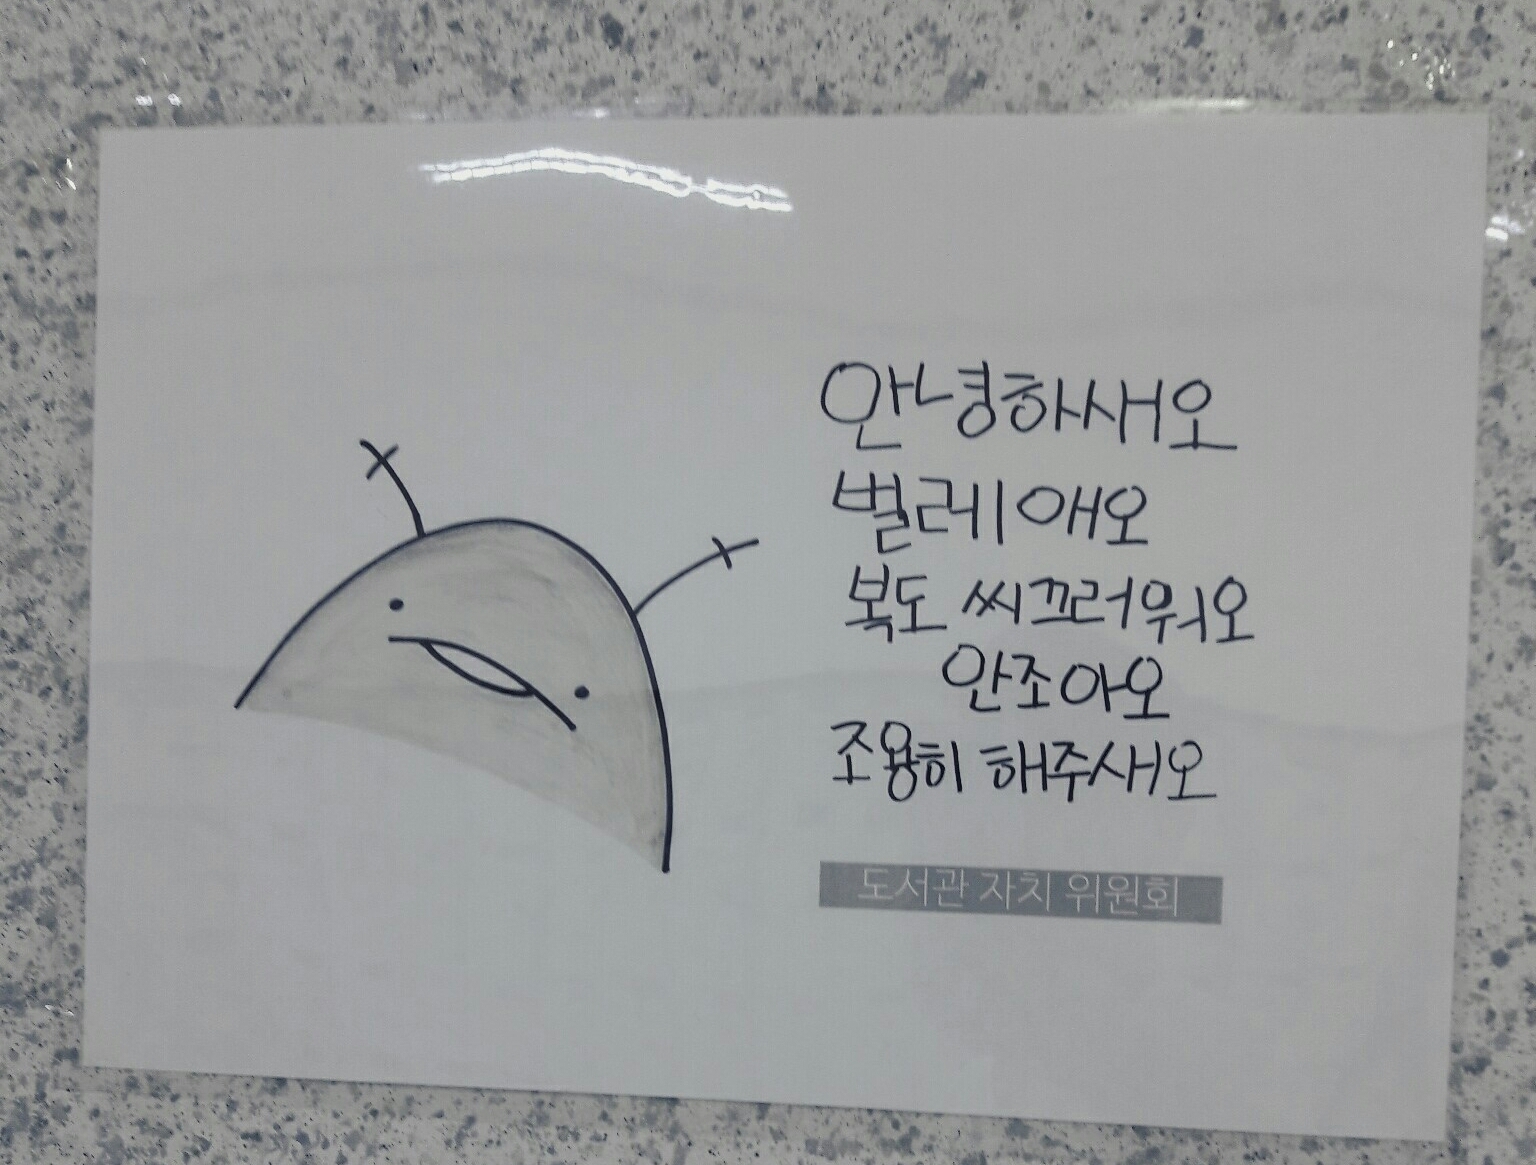 안녕하새오
벌레애오
복도 씨끄러워오
안조아오
조용히 해주새오
도서관 자치 위원회